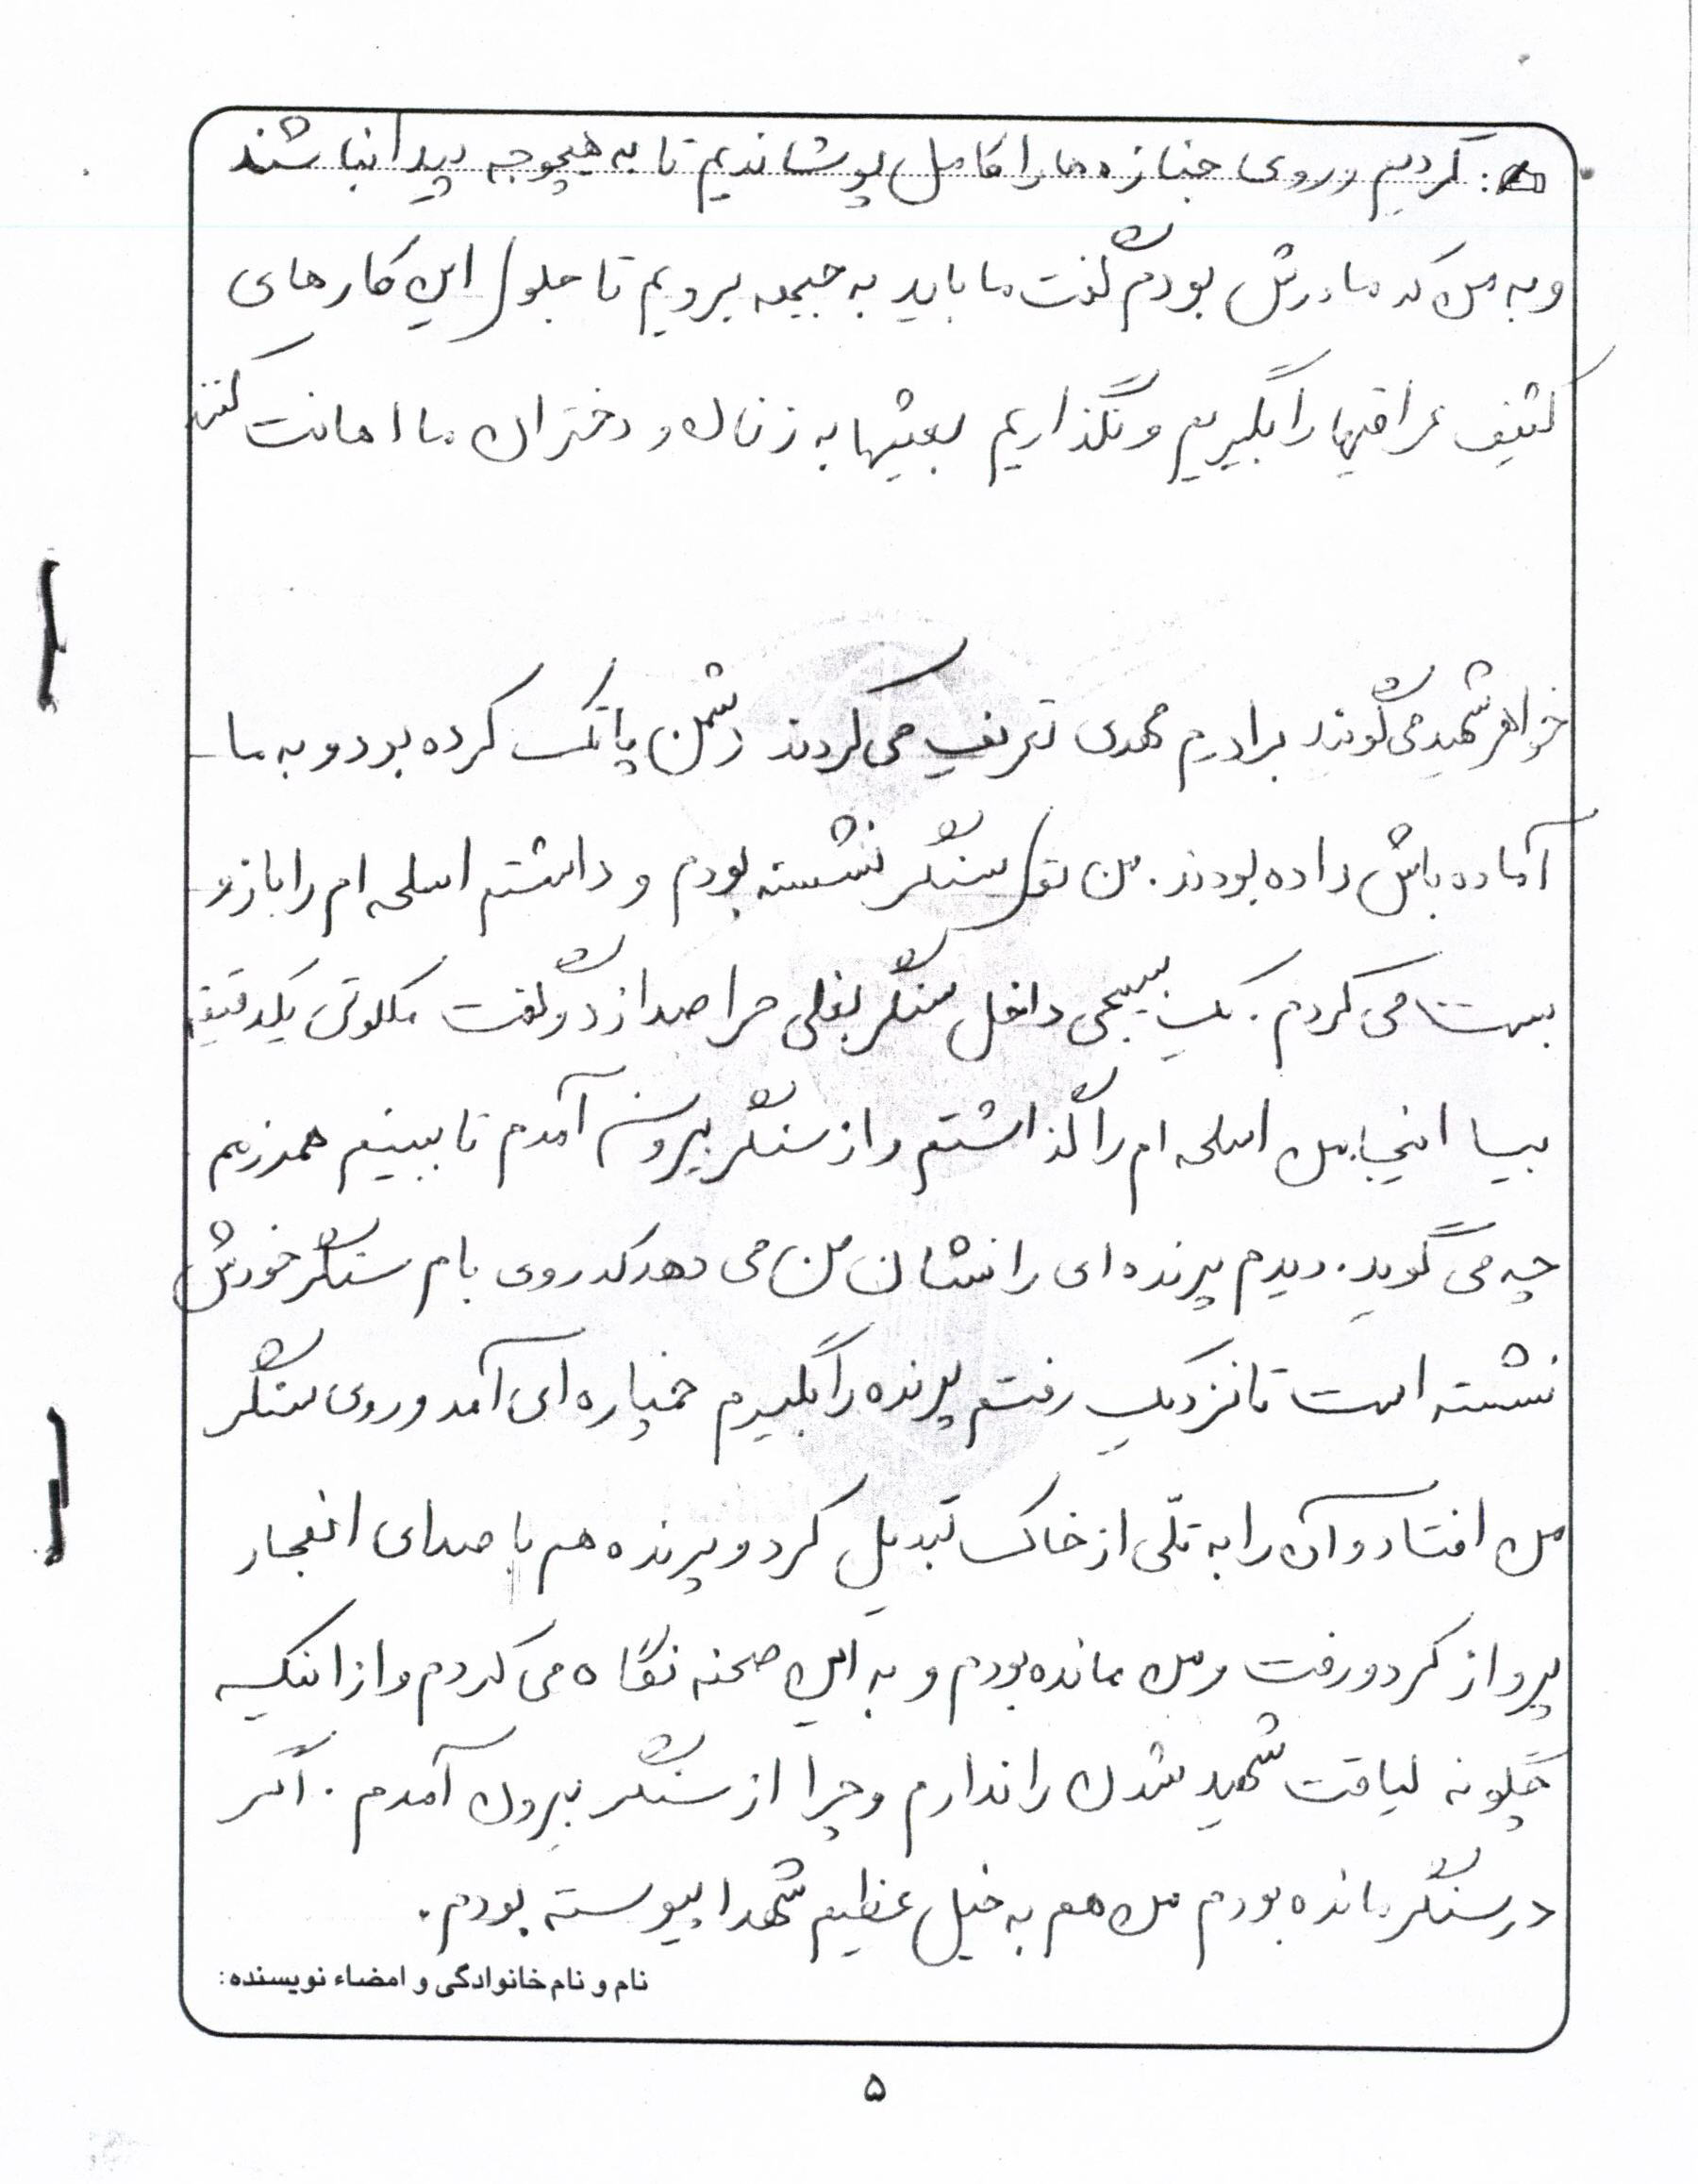 کردیم و روی جنازه ها را کامل پوشاندیم تا به هیچوجه پیدا نباشند
و به من که مادرش بودم گفت ما باید به جبهه برویم تا جلوی این کارهای
کثیف عراقیها را بگیریم و نگذاریم بعثیها به زنان و دختران ما اهانت کنند
خواهر شهید می گویند برادرم مهدی تعریف می کردند دشمن پاتک کرده بود و به ما
آماده باش داده بودند. من توی سنگر نشسته بودم و داشتم اسلحه ام را باز و
بست می کردم. یک بسیجی داخل سنگر بغلی مرا صدا زد و گفت ملکوتی یک دقیقه
بیا اینجا. من اسلحه ام را گذاشتم و از سنگر بیرون آمدم تا ببینم همرزمم
چه می گوید. دیدم پرنده ای را نشان من می دهد که روی بام سنگر خودش
نشسته است تا نزدیک رفتم پرنده را بگیرم خمپاره ای آمد و روی سنگر
من افتاد و آن را به تلّی از خاک تبدیل کرد و پرنده هم با صدای انفجار
پرواز کرد و رفت و من مانده بودم و به این صحنه نگاه می کردم و از اینکه
چگونه لیاقت شهید شدن را ندارم و چرا از سنگر بیرون آمدم. اگر
در سنگر مانده بودم من هم به خیل عظیم شهدا پیوسته بودم.
نام و نام خانوادگی و امضاء نویسنده:
۵